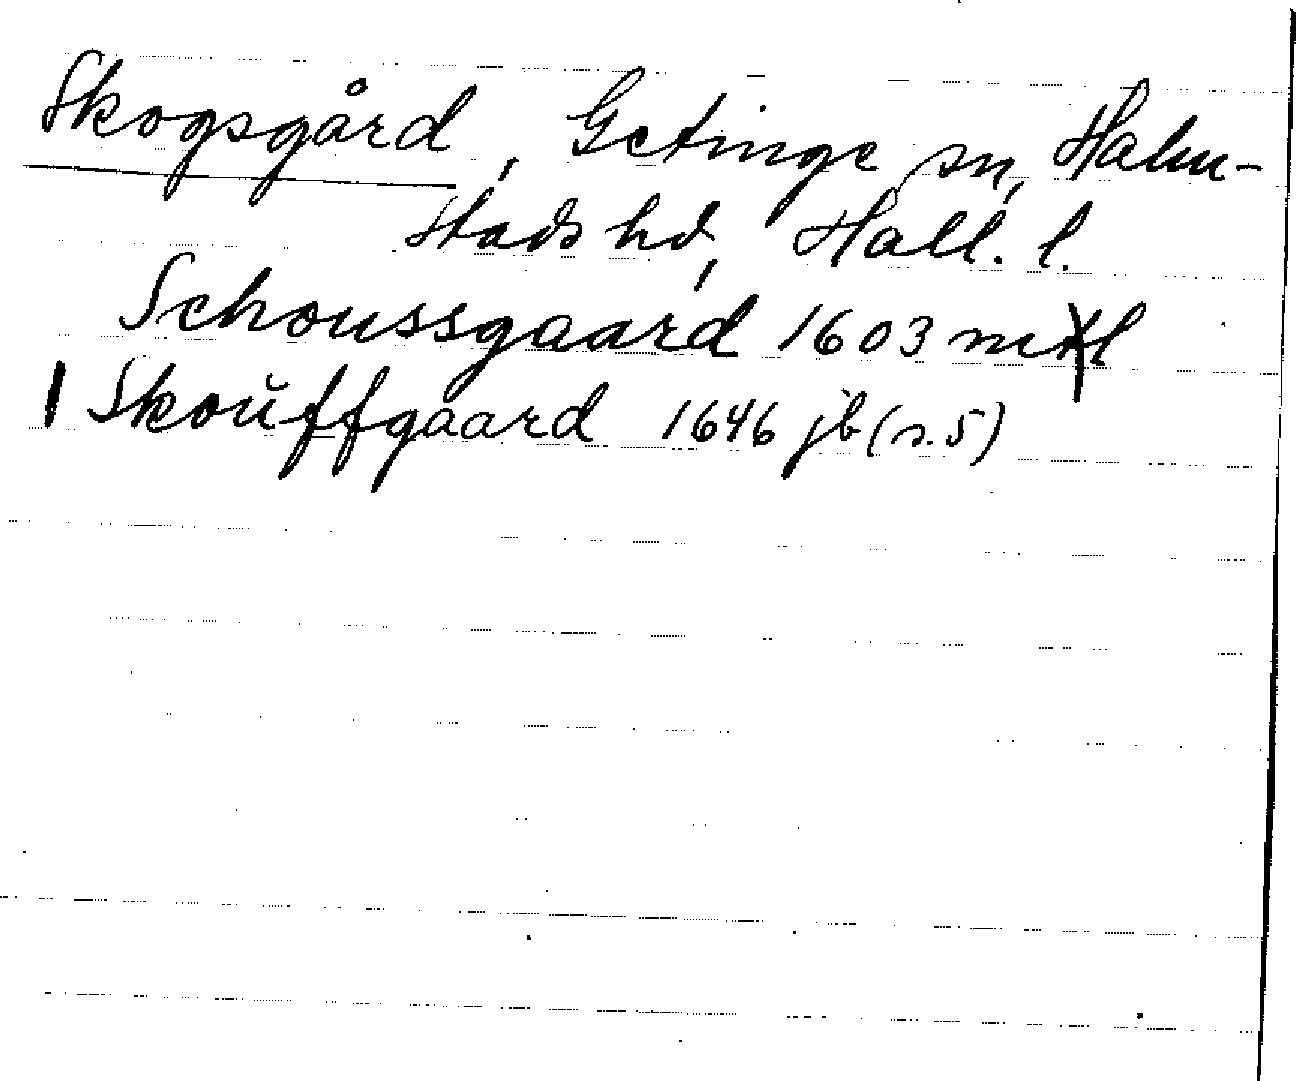 Skogsgård, Getinge sn, Halm-
stads hd, Hall. l.
Schoussgaard 1603
Skoŭffgaard 1646 jb (s. 5)